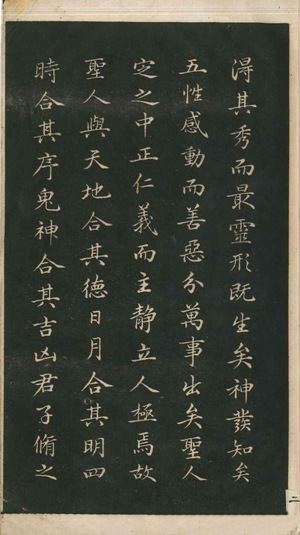 得其秀而最靈形既生矣神發知矣
五性感動而善惡分萬事出矣聖人
定之中正仁義而主静立人極焉故
聖人與天地合其德日月合其明四
時合其序鬼神合其吉凶君子脩之
二